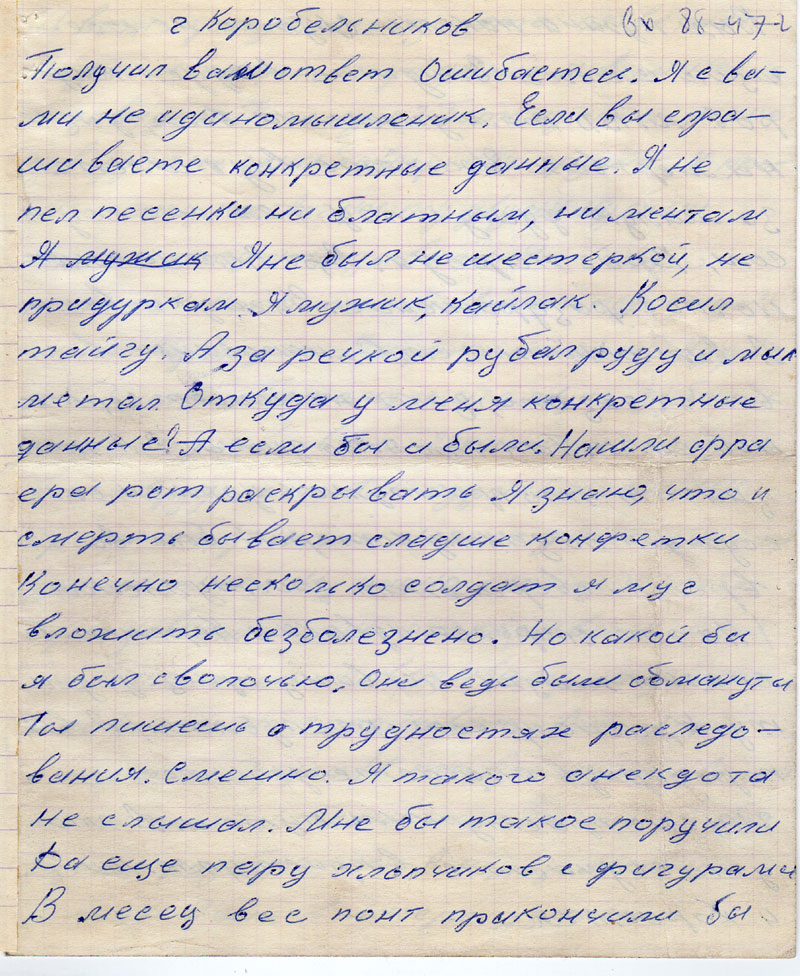 г Коробельников Вх 88-477-2
Получил ваш ответ Ошибаетес. Я с ва-
ми не идиномышленик. Если вы спра-
шиваете конкретные данные. Я не
пел песенки ни блатным, ни ментам
Я мужик Я не был не шестеркой, не
придуркам. Я мужик, Кайлак. Косил
тайгу. А за речкой рубал руду и мыл
метал. Откуда у меня конкретные
данные? А если бы и были. Нашли фра
ера рот раскрывать Я знаю, что и
смерть бывает сладше конфетки
Конечно несколько солдат я мог
вложить безболезнено. Но какой бы
я был сволочью. Они ведь были обмануты
Ты пишешь о трудностях раследо-
вания. Смешно. Я такого анекдота
не слышал. Мне бы такое поручили
Да еще пару хлопчиков с фигурами
В месец вес понт прикончили бы